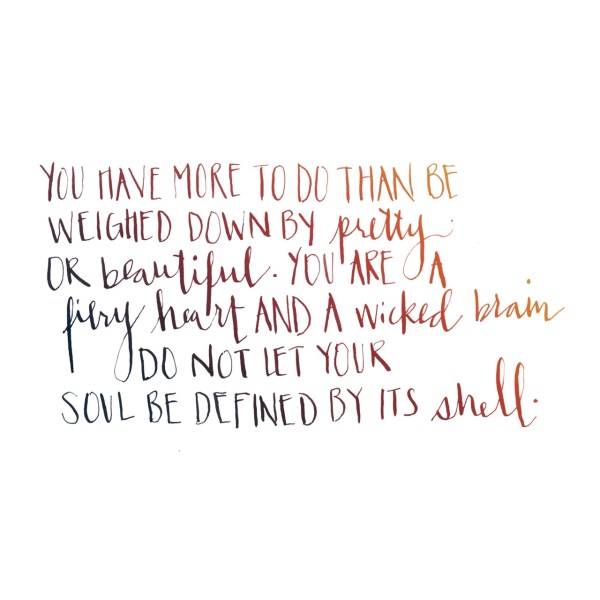 YOU HAVE MORE TO DO THAN BE
WEIGHED DOWN BY pretty
OR beautiful. YOU ARE A
fiery heart AND A wicked brain
DO NOT LET YOUR
SOUL BE DEFINED BY ITS shell.